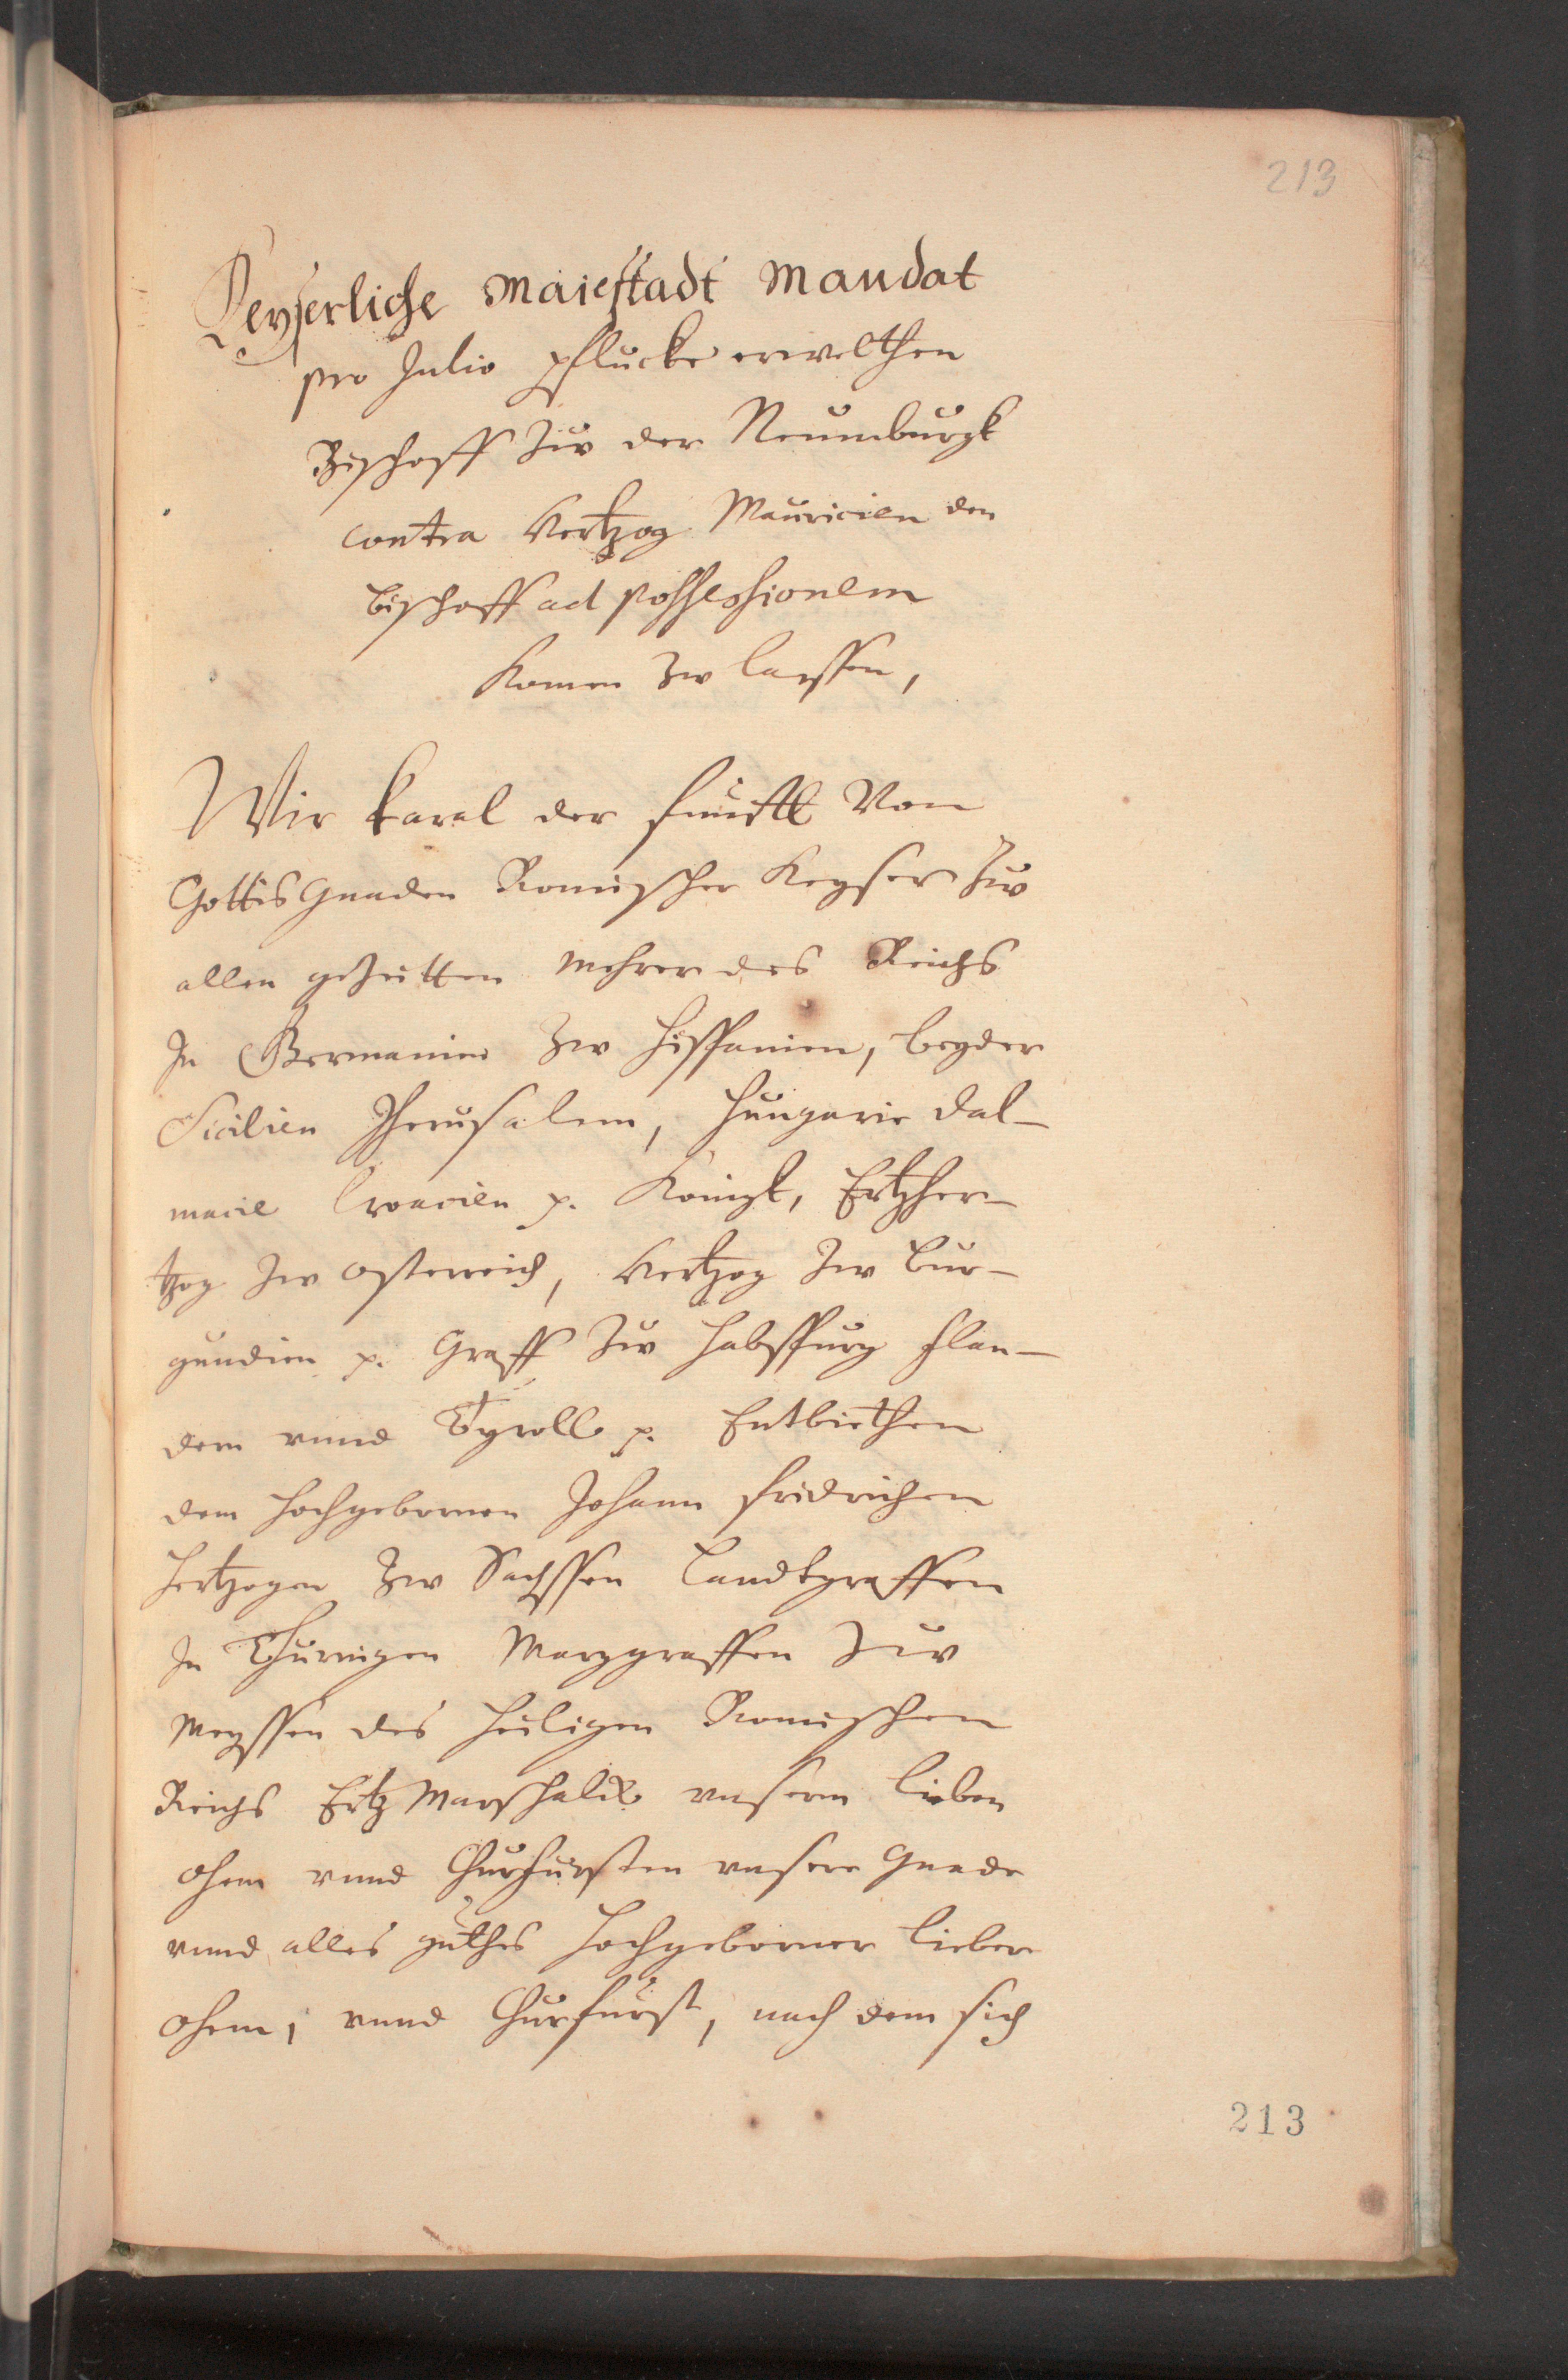 213
Keyserliche Maiestadt Mandat
pro Julio pflucke erwelthen
Bischoff zw der Neumburgk
contra Hertzog Mauricien den
bischoff ad possessionem
komen zw lassen,
Wir karal der funfft Von
Gottis Gnaden Romischer Keyser zw
allen gezeitten mehrer des Reichs
In Germanien zw Hispanien, beyder
Sicilien Jherusalem, Hungarie Dal-
macie Croacien p. Konigk, Ertzher-
tzog zw Osterreich, Hertzog zw Bur-
gundien p. Graff zw Habspurg Flan-
dern vnnd Tyroll p. Entbiethen
dem hochgebornen Johann Fridrichen
Hertzogen zw Sachssen Landtgraffen
In Thuringen Marggraffen zw
Meyssen des heiligen Romischen
Reichs Ertz Marschalck vnserm lieben
ohem vnnd Churfursten vnsere Gnade
vnnd alles guthes hochgeborner lieber
ohem, vnnd Churfurst, nach dem sich
213